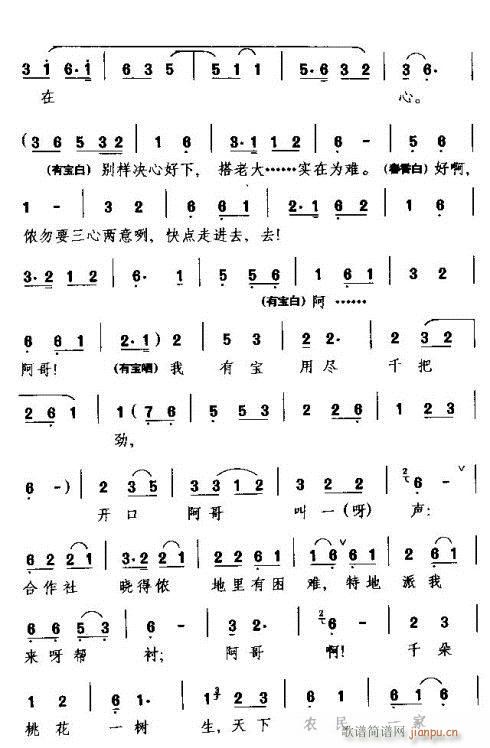 3 1 6·1 | 6 3 5 | 5 1 1 | 5·6 3 2 | 3 6· |
在 心。
(3 6 5 3 2 | 1 6 | 3·1 2 1 | 6 - | 5 6 |
(有宝白) 别样决心好下, 搭老大……实在为难。(春香白) 好啊,
1 - | 3 0 5 | 6 5 1 | 2·1 6 2 | 1 6 |
侬勿要三心两意咧, 快点走进去, 去!
3·2 1 2 | 6· 1 | 5 5 6 | 1 6 1 | 3 5 |
(有宝白) 阿……
6 6 1 | 2·1) 2 | 5 5 | 3 2 | 2 3 2 |
阿哥! (有宝唱) 我 有 宝 用 尽 千 把
2 6 1 | 1 (7 6 | 5 5 3 | 5 6 1 | 2 3 |
劲,
6 -) | 2 3 5 | 3 3 1 2 | 3 2 | 6 - |
开 口 阿 哥 叫 一 (呀) 声:
6 2 2 1 | 3·2 2 1 | 2 2 6 1 | 1 6 6 1 | 2 2 1 |
合 作 社 晓 得 侬 地 里 有 困 难, 特 地 派 我
6 6 5 3 | 5 6 | 3 2· | 6· | 2 2 |
来 呀 帮 衬; 阿 哥 啊! 千 朵
1 2 | 1 2 | 3 2· | 2 2 | 6 1 6 |
桃 花 一 树 生, 天 下 农 民 一 家
歌谱简谱网 jianpu.cn